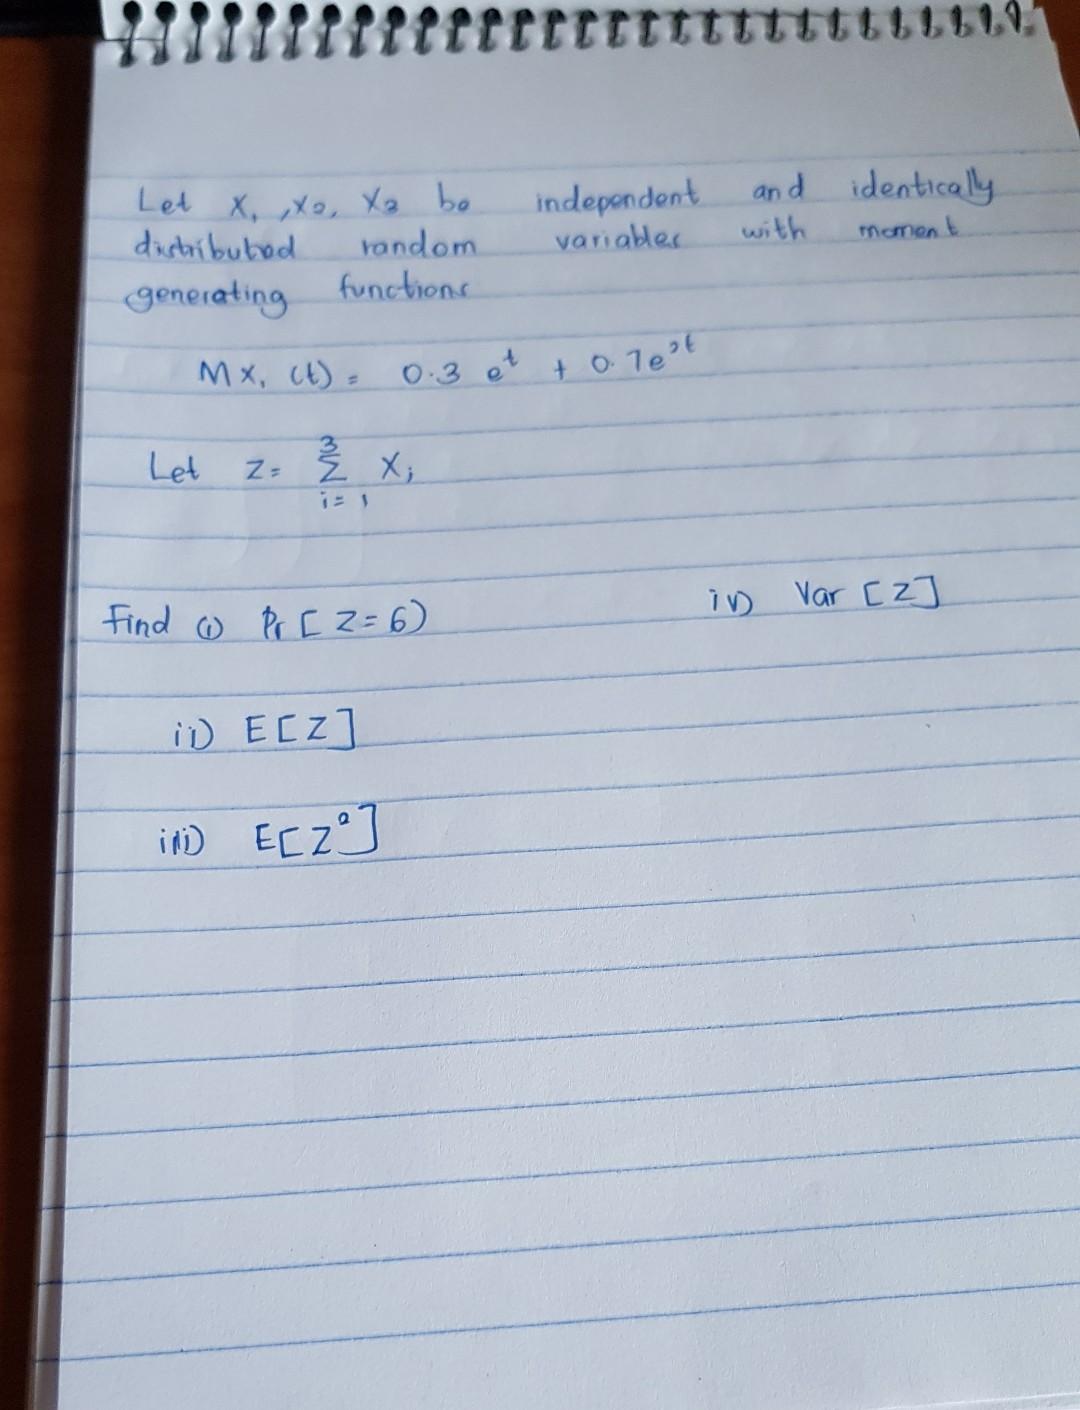 Let X₁, X₂, X₃ be independent and identically
distributed random variables with moment
generating functions
Mx₁ (t) = 0.3 e^t + 0.7e^2t
Let Z = 3 Σ i=1 Xi
Find (i) Pr [ Z = 6)
iv) Var [Z]
ii) E[Z]
iii) E[Z²]